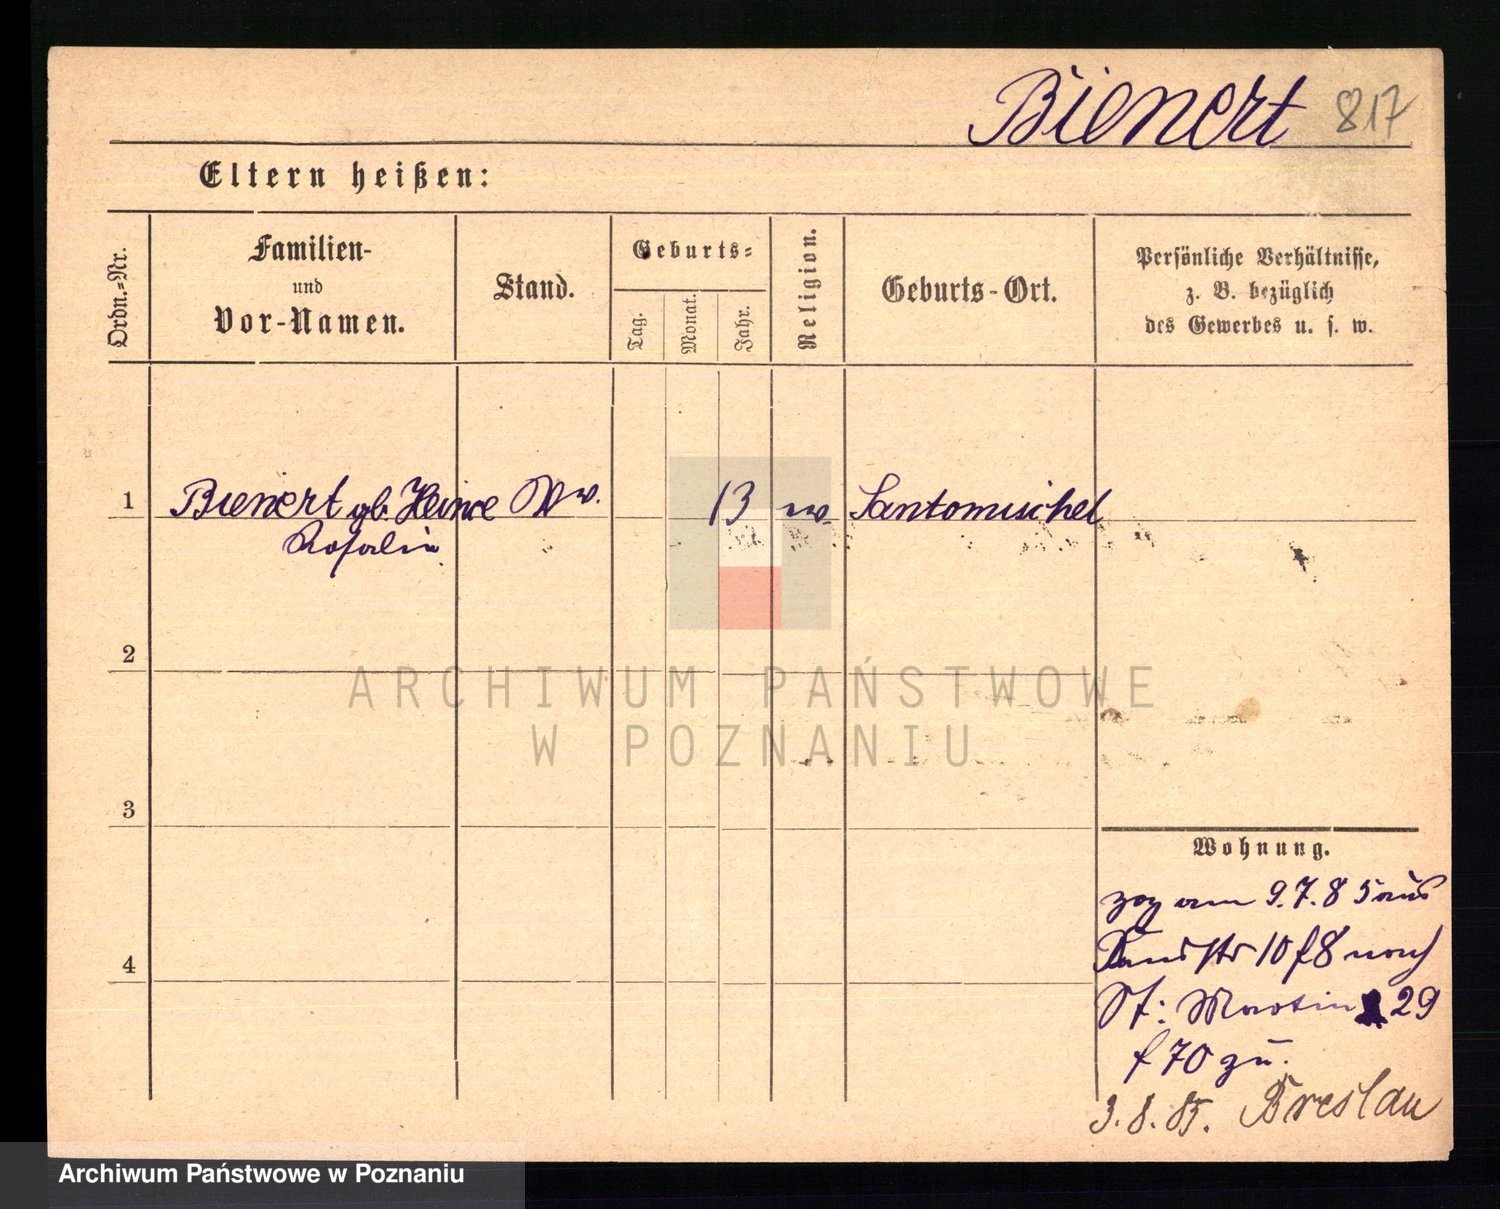 Bienert 817
Eltern heißen:
Ordn.-Nr.
Familien-
und
Vor-Namen.
Stand.
Geburts-
Tag.
Monat.
Jahr.
Religion.
Geburts-Ort.
Persönliche Verhältnisse,
z. B. bezüglich
des Gewerbes u. s. w.
1 Bienert gb. Heinze Ww. 13 Santomischel
Rosalie
2
ARCHIWUM PAŃSTWOWE
W POZNANIU
3
Wohnung.
zog am 9.7.85 aus
10 f 8 nach
4
St: Martin 29
f 70 zu.
3.8.85. Breslau
Archiwum Państwowe w Poznaniu